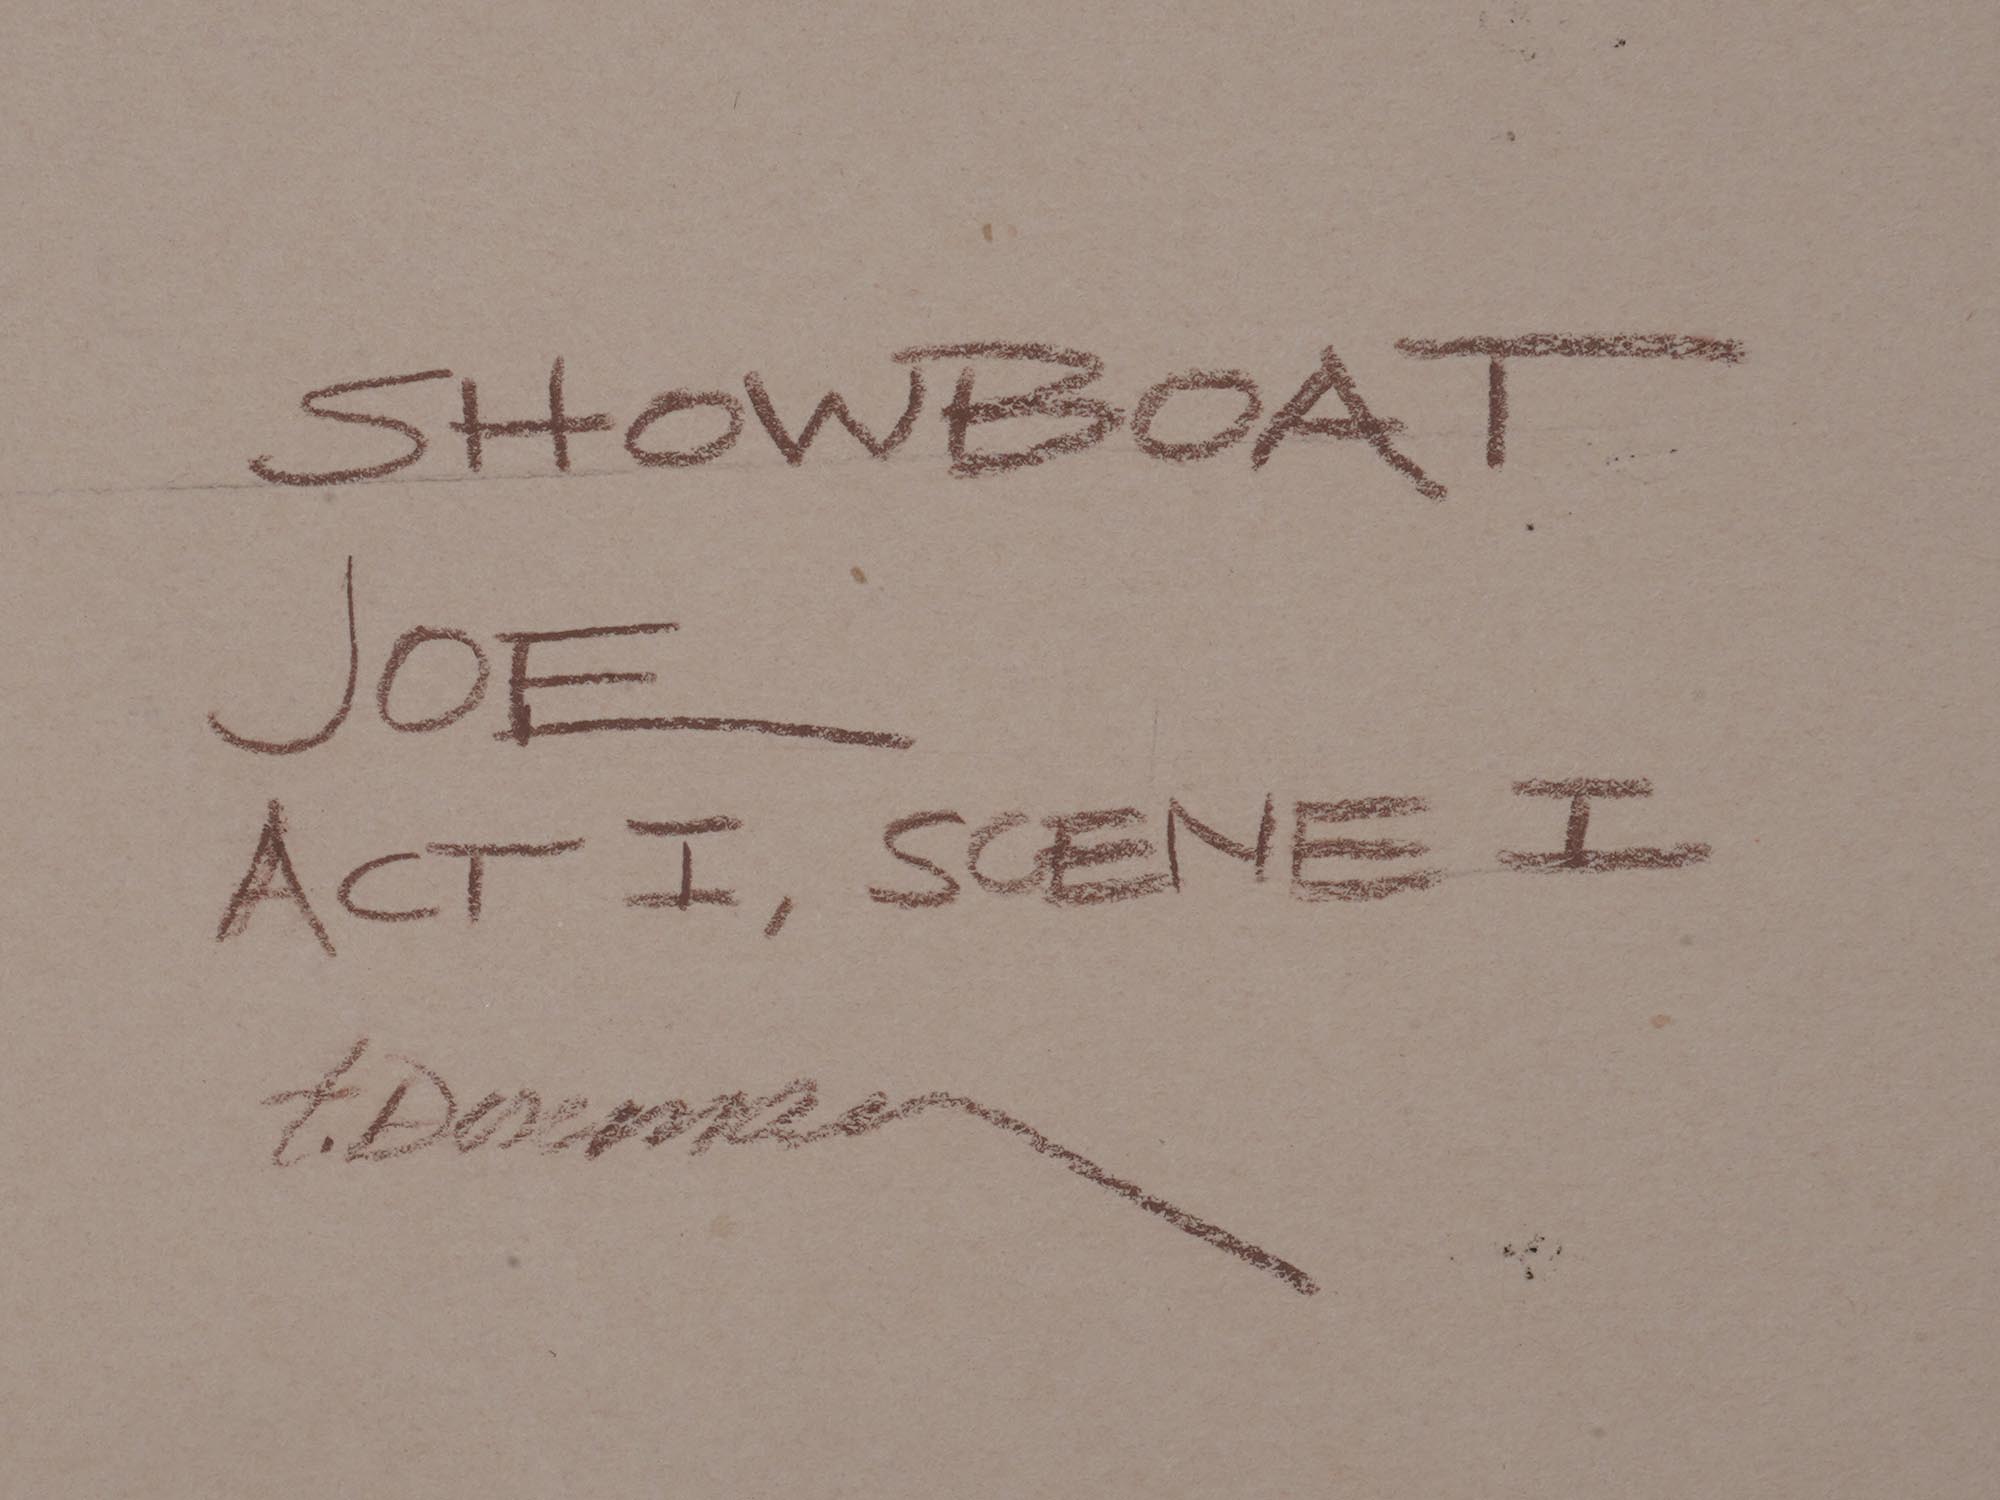 SHOWBOAT
JOE
ACT I, SCENE I
t.